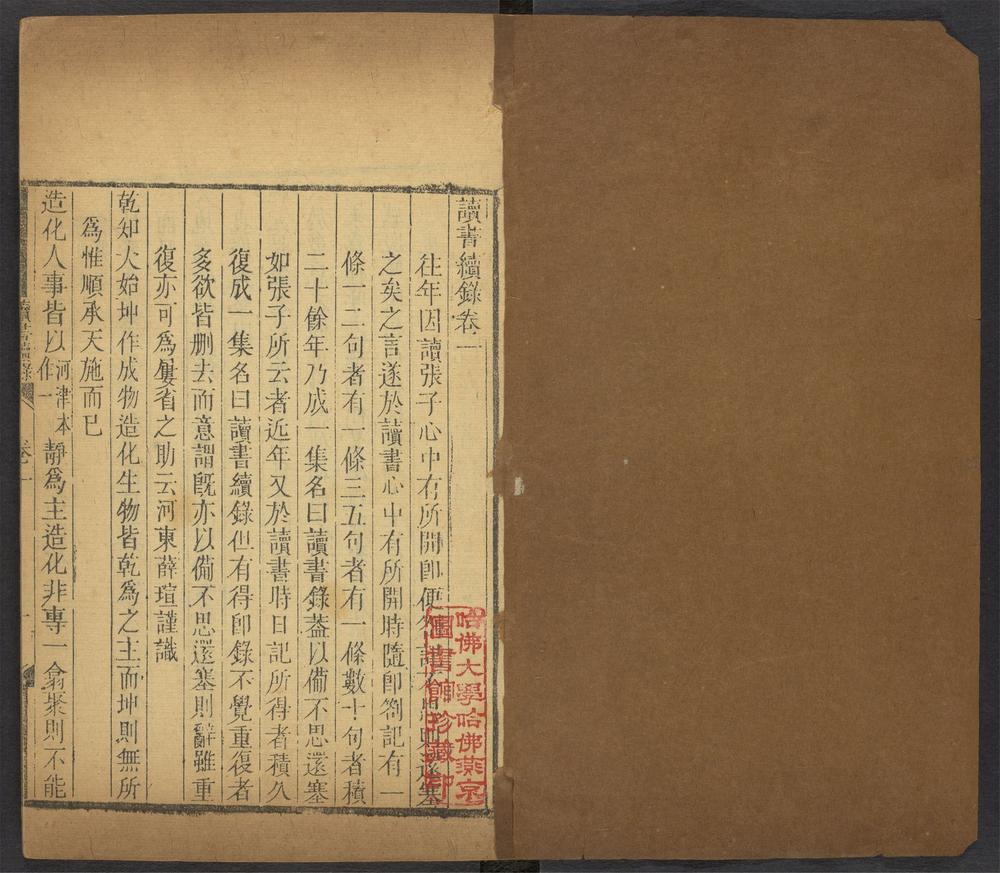 讀書續錄卷一
往年因讀張子心中有所開即便劄記不思則還塞
之矣之言遂於讀書心中有所開時隨即劄記有一
條一二句者有一條三五句者有一條數十句者積
二十餘年乃成一集名曰讀書錄葢以備不思還塞
如張子所云者近年又於讀書時日記所得者積久
復成一集名曰讀書續錄但有得即錄不覺重復者
多欲皆删去而意謂旣亦以備不思還塞則辭雖重
復亦可爲屢省之助云河東薛瑄謹識
乾知大始坤作成物造化生物皆乾爲之主而坤則無所
爲惟順承天施而已
造化人事皆以河津本作一靜爲主造化非專一翕聚則不能
讀書續錄
卷一
一
哈佛大學哈佛燕京
圖書館珍藏印